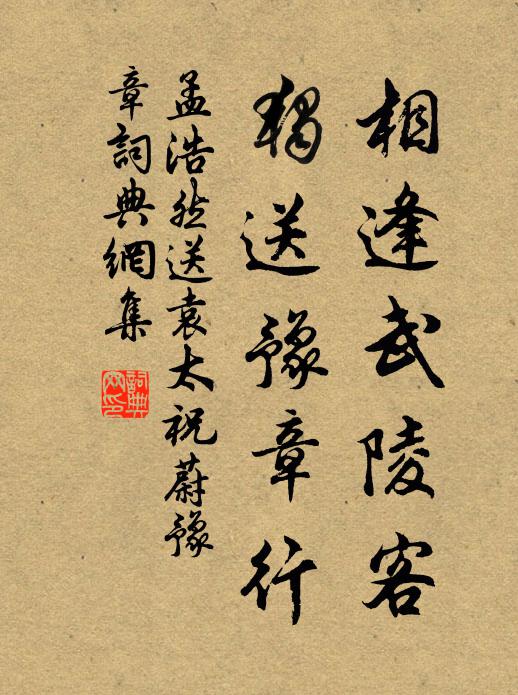 相逢武陵客
獨送豫章行
孟浩然送袁太祝蔚豫
章詞典網集
詞典網印